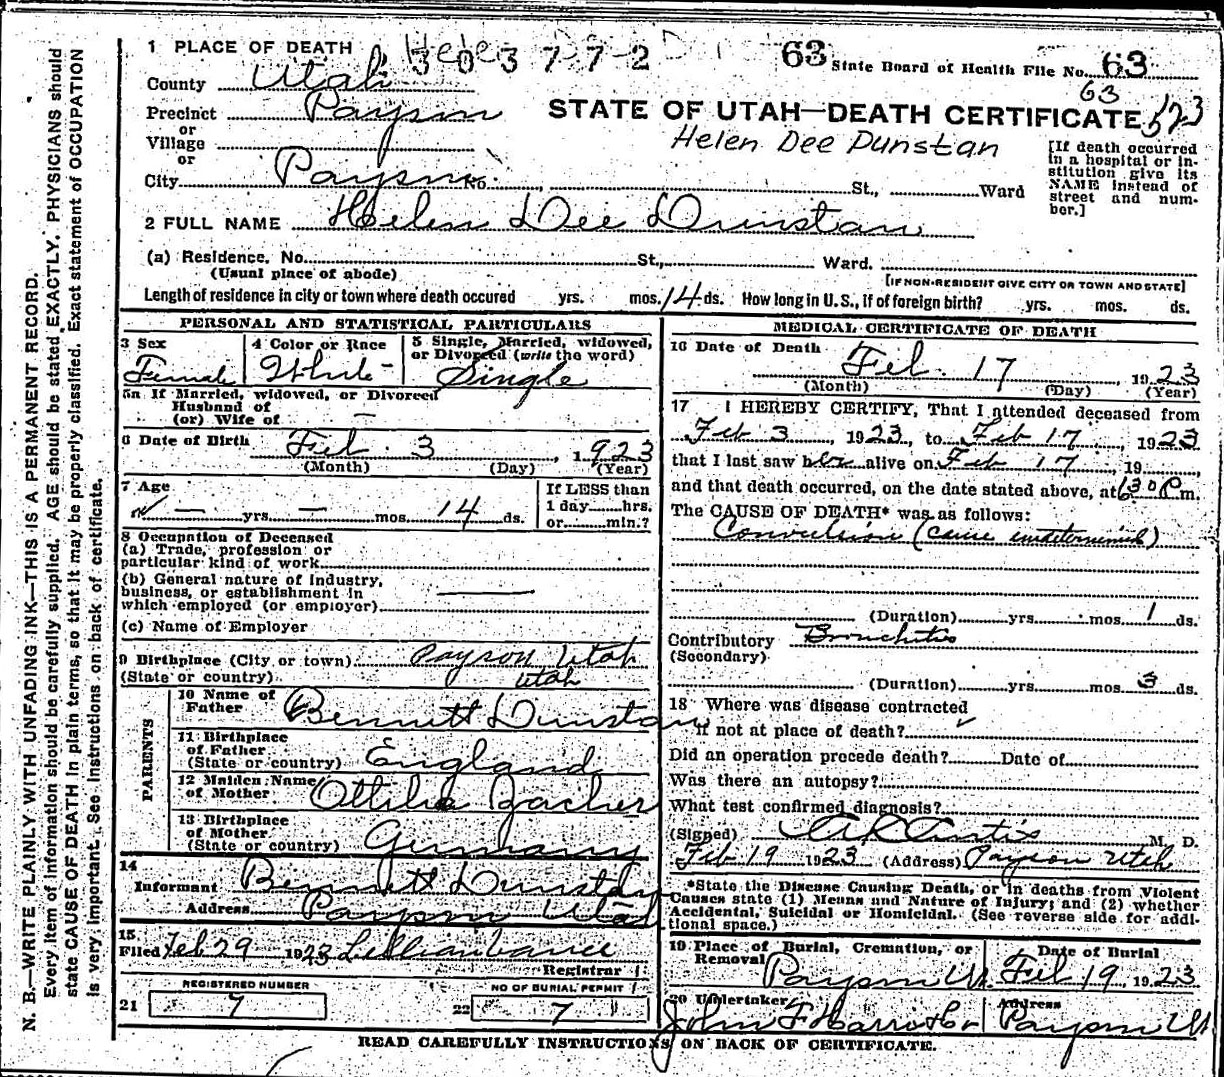 N. B.—WRITE PLAINLY WITH UNFADING INK—THIS IS A PERMANENT RECORD.
Every item of information should be carefully supplied. AGE should be stated EXACTLY. PHYSICIANS should
state CAUSE OF DEATH in plain terms, so that it may be properly classified. Exact statement of OCCUPATION
is very important. See instructions on back of certificate.
1 PLACE OF DEATH 303772 63 State Board of Health File No. 63
County Utah 63
Precinct Payson STATE OF UTAH—DEATH CERTIFICATE 523
or
Village Helen Dee Dunstan
or
City Payson No. St., Ward
[If death occurred
in a hospital or in-
stitution give its
NAME instead of
street and num-
ber.]
2 FULL NAME Helen Dee Dunstan
(a) Residence. No. St., Ward.
(Usual place of abode) [IF NON-RESIDENT GIVE CITY OR TOWN AND STATE]
Length of residence in city or town where death occured yrs. mos. 14 ds. How long in U. S., if of foreign birth? yrs. mos. ds.
PERSONAL AND STATISTICAL PARTICULARS
3 Sex
Female
4 Color or Race
White
5 Single, Married, widowed,
or Divorced (write the word)
Single
5a If Married, widowed, or Divorced
Husband of
(or) Wife of —
6 Date of Birth Feb. 3, 1923
(Month) (Day) (Year)
7 Age
— yrs. — mos. 14 ds.
If LESS than
1 day hrs.
or min.?
8 Occupation of Deceased
(a) Trade, profession or
particular kind of work
(b) General nature of industry,
business, or establishment in
which employed (or employer)
(c) Name of Employer
9 Birthplace (City or town) Payson Utah
(State or country) Utah
PARENTS
10 Name of
Father Bennett Dunstan
11 Birthplace
of Father
(State or country) England
12 Maiden Name
of Mother Ottilie Zacher
13 Birthplace
of Mother
(State or country) Germany
14
Informant Bennett Dunstan
Address Payson Utah
15
Filed Feb 29 1923 Lillian Vance
Registrar
REGISTERED NUMBER
21 7
NO OF BURIAL PERMIT
22 7
MEDICAL CERTIFICATE OF DEATH
16 Date of Death Feb. 17, 1923
(Month) (Day) (Year)
17 I HEREBY CERTIFY, That I attended deceased from
Feb 3, 1923, to Feb 17, 1923
that I last saw her alive on Feb 17, 19
and that death occurred, on the date stated above, at 630 P m.
The CAUSE OF DEATH* was as follows:
Convulsion (cause undetermined)
(Duration) yrs. mos. 1 ds.
Contributory Bronchitis
(Secondary)
(Duration) yrs. mos. 3 ds.
18 Where was disease contracted
if not at place of death?
Did an operation precede death? Date of
Was there an autopsy?
What test confirmed diagnosis?
(Signed) M. D.
Feb 19 1923 (Address) Payson Utah
*State the Disease Causing Death, or in deaths from Violent
Causes state (1) Means and Nature of Injury; and (2) whether
Accidental, Suicidal or Homicidal. (See reverse side for addi-
tional space.)
19 Place of Burial, Cremation, or
Removal Payson Ut.
Date of Burial
Feb 19, 1923
20 Undertaker
John F Harris
Address
Payson Ut
READ CAREFULLY INSTRUCTIONS ON BACK OF CERTIFICATE.